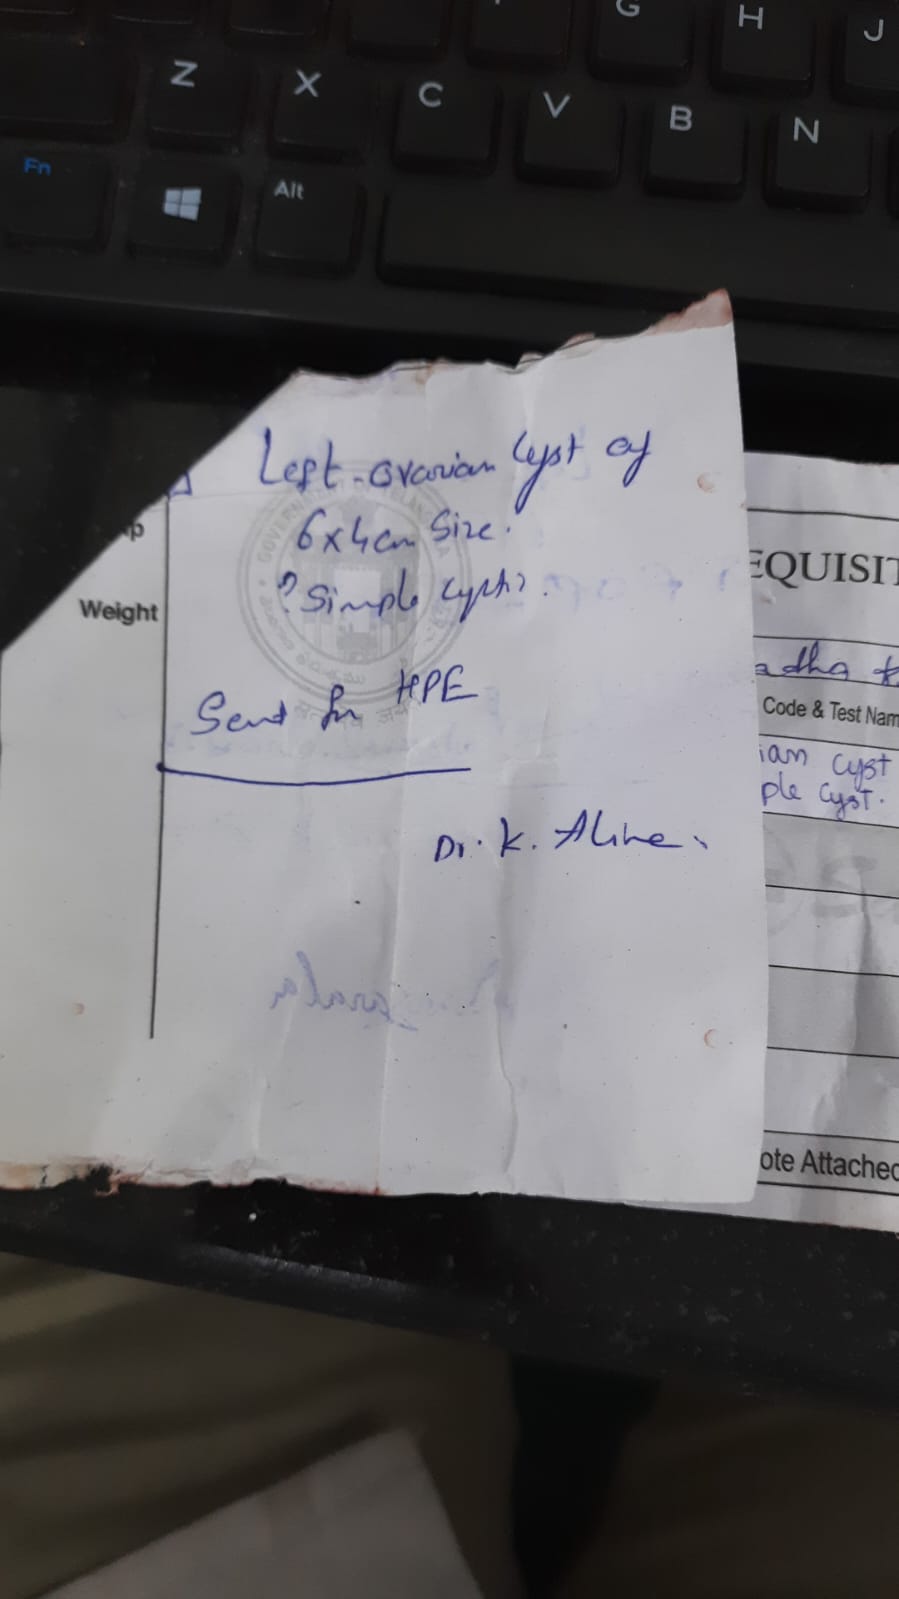 G H J
Z X C V B N
Fn Alt
Left ovarian Cyst of
6x4cm Size.
? Simple Cyst?.
Weight
Sent for HPE
Dr. K.
EQUISIT
adha
Code & Test Nam
ian cyst
ple cyst.
ote Attached